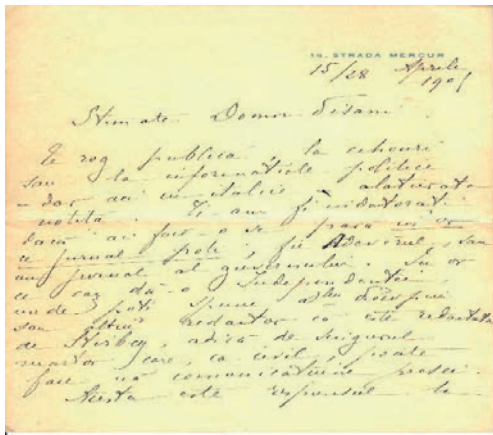 19, STRADA MERCUR
15/28 Aprilie
190
Stimate Domn Disani
Te rog publică, la echouri
sau la informațiile politice
– dar aci în italic – alăturata
notiță. Ți-am fi îndatorat
dacă ai face-o să pară în or
ce jurnal poți, fie Adevĕrul, sau
un jurnal al guvernului. În or
ce caz dă-o Independenței
unde poți spune
sau altui redactor că este redactată
de Știrbey, adică de singurul
martor care, ca civil, poate
face nă comunicațiune presei.
Acesta este răspunsul la